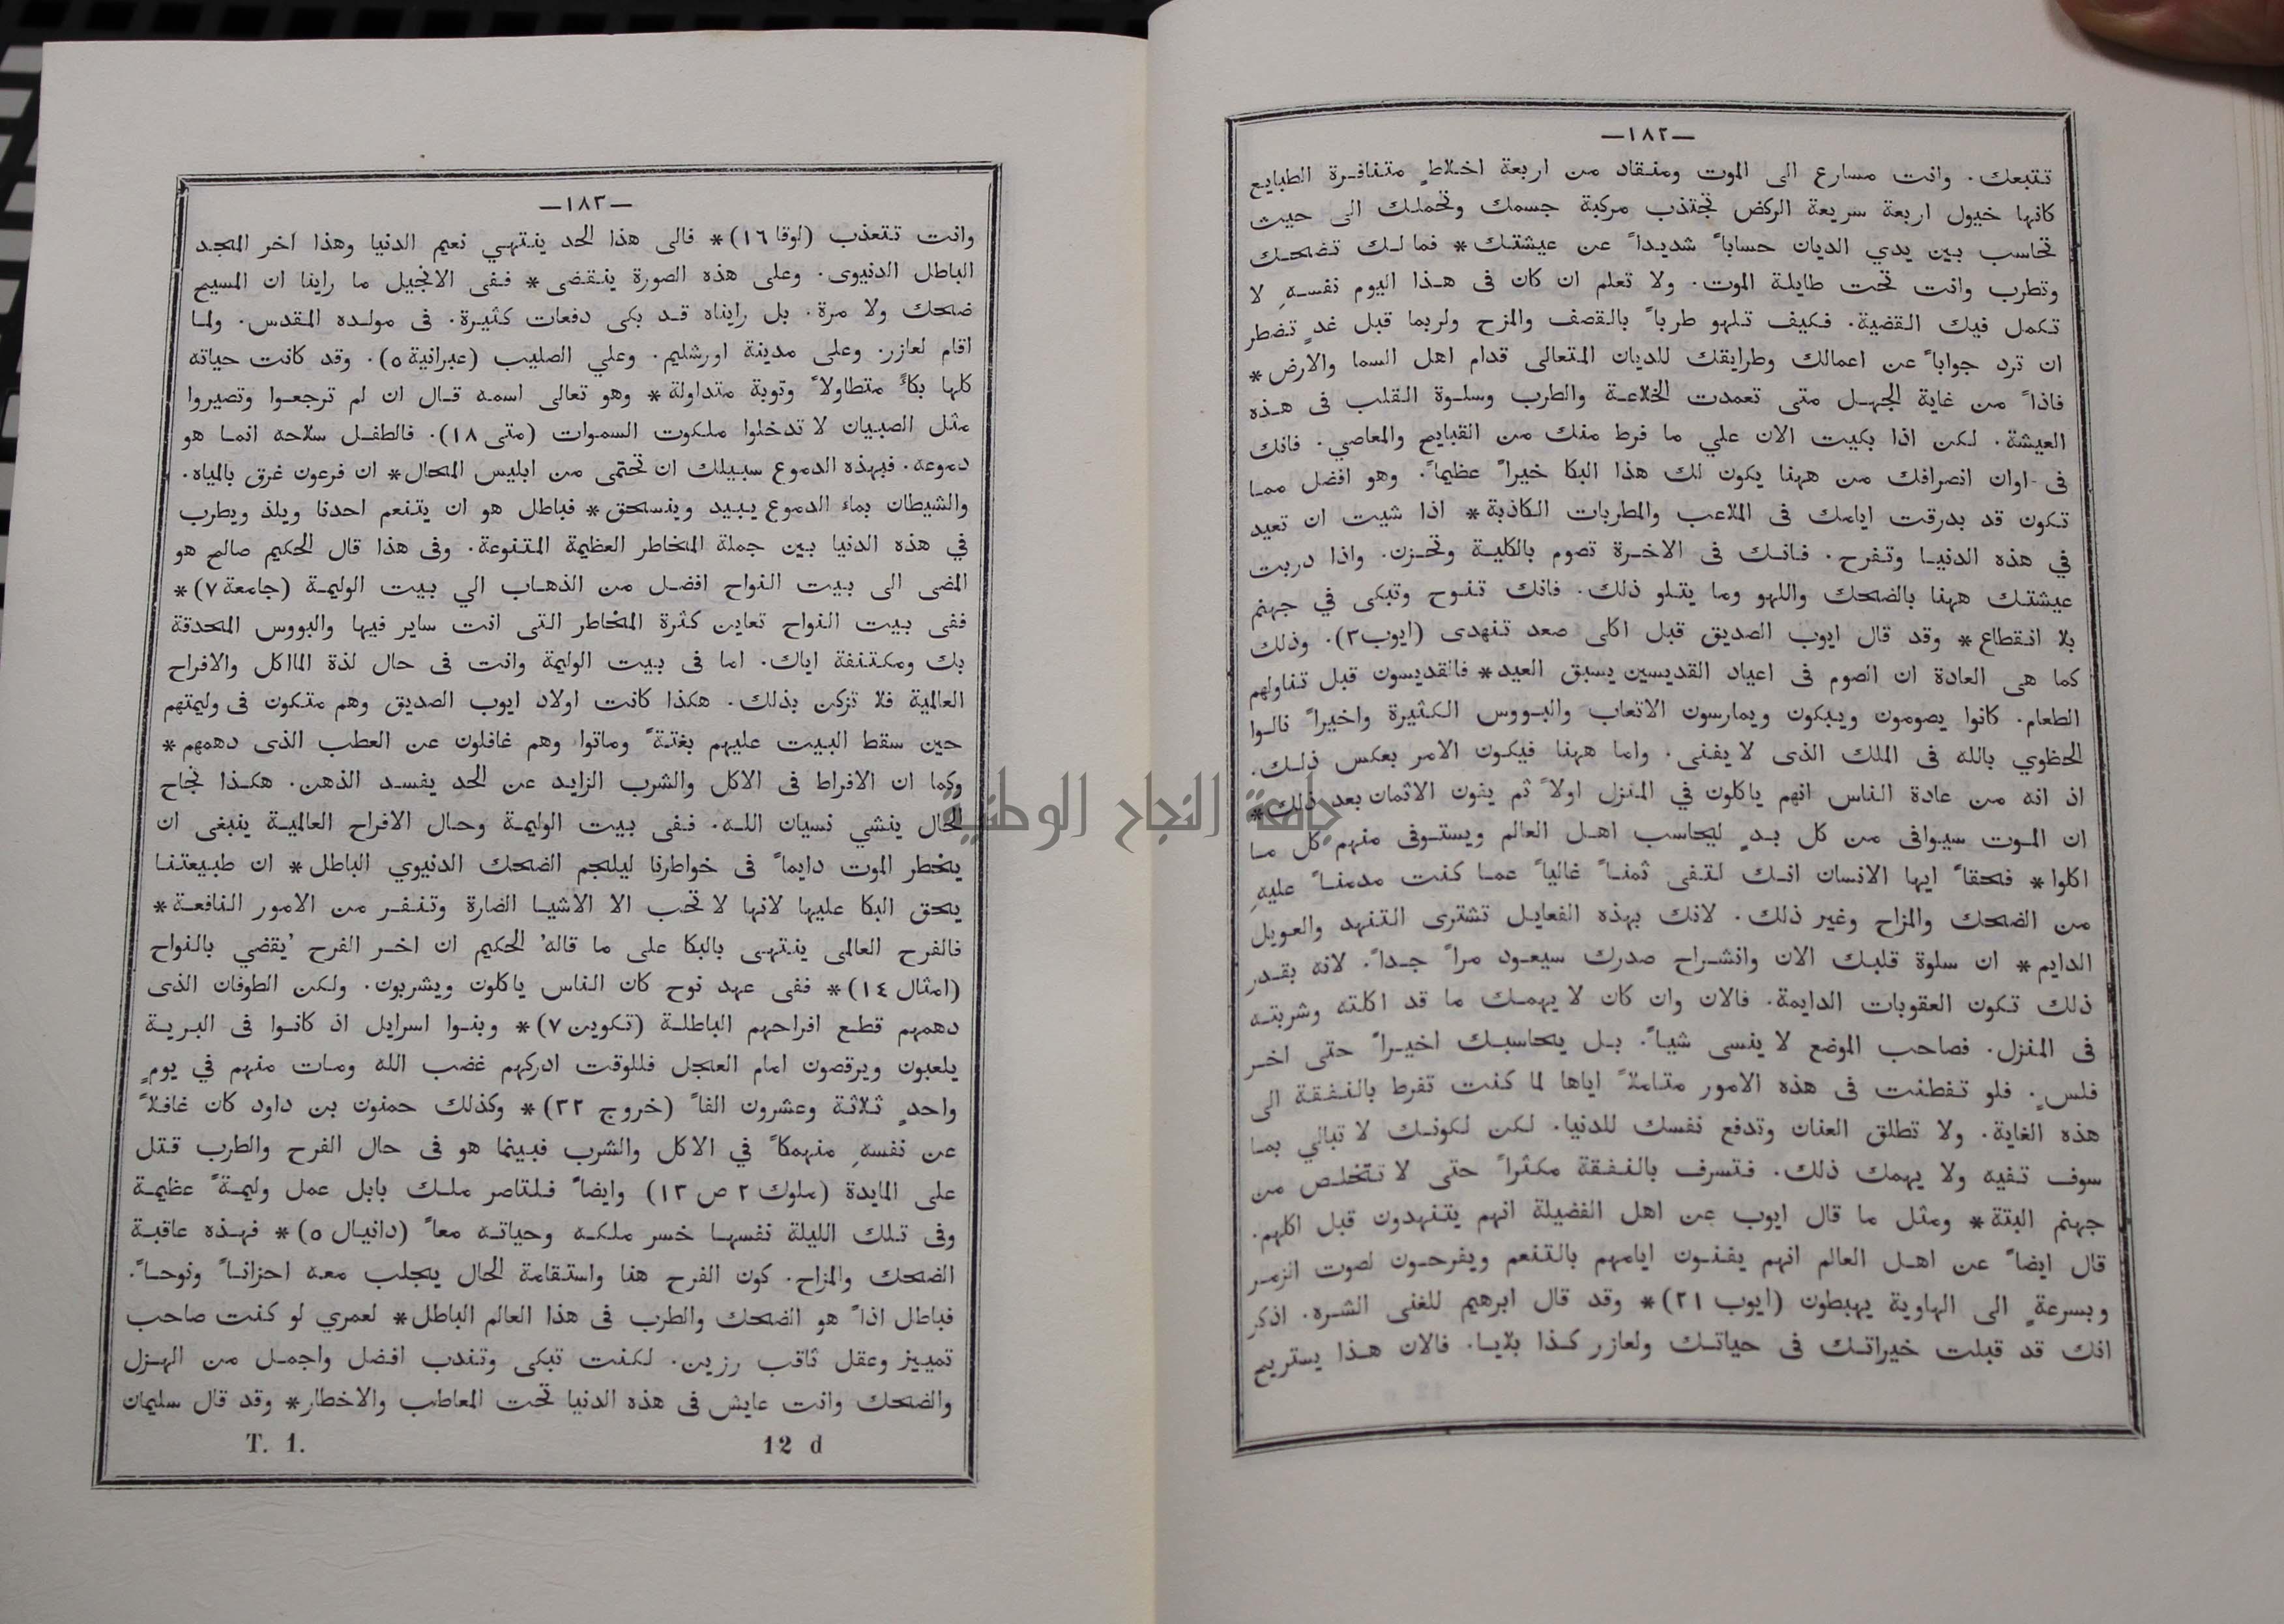 —١٨٢—
تتبعك. وانت مسارع الى الموت ومنقاد من اربعة اخلاطٍ متنافرة الطبايع
كانها خيول اربعة سريعة الركض تجتذب مركبة جسمك وتحملك الى حيث
تحاسب بين يدي الديان حساباً شديداً عن عيشتك* فما لك تضحك
وتطرب وانت تحت طايلة الموت. ولا تعلم ان كان فى هذا اليوم نفسهِ لا
تكمل فيك القضية. فكيف تلهو طرباً بالقصف والمزح ولربما قبل غدٍ تضطر
ان ترد جواباً عن اعمالك وطرايقك للديان المتعالى قدام اهل السما والارض*
فاذاً من غاية الجهل متى تعمدت الخلاعة والطرب وسلوة القلب فى هذه
العيشة. لكن اذا بكيت الان علي ما فرط منك من القبايح والمعاصي. فانك
فى اوان انصرافك من ههنا يكون لك هذا البكا خيراً عظيماً. وهو افضل مما
تكون قد بدرقت ايامك فى الملاعب والمطربات الكاذبة* اذا شيت ان تعيد
في هذه الدنيا وتفرح. فانك فى الاخرة تصوم بالكلية وتحزن. واذا دربت
عيشتك ههنا بالضحك واللهو وما يتلو ذلك. فانك تنوح وتبكى في جهنم
بلا انقطاع* وقد قال ايوب الصديق قبل اكلى صعد تنهدى (ايوب ٣). وذلك
كما هى العادة ان الصوم فى اعياد القديسين يسبق العيد* فالقديسون قبل تناولهم
الطعام. كانوا يصومون ويبكون ويمارسون الاتعاب والبووس الكثيرة واخيراً نالوا
الحظوي بالله فى الملك الذى لا يفنى. واما ههنا فيكون الامر بعكس ذلك.
اذ انه من عادة الناس انهم ياكلون في المنزل اولاً ثم يفون الاثمان بعد ذلك*
ان الموت سيوافى من كل بدٍ ليحاسب اهل العالم ويستوفى منهم كل ما
اكلوا* فحقاً ايها الانسان انك لتفى ثمناً غالياً عما كنت مدمناً عليهِ
من الضحك والمزاح وغير ذلك. لانك بهذه الفعايل تشترى التنهد والعويل
الدايم* ان سلوة قلبك الان وانشراح صدرك سيعود مراً جداً. لانه بقدر
ذلك تكون العقوبات الدايمة. فالان وان كان لا يهمك ما قد اكلته وشربته
فى المنزل. فصاحب الموضع لا ينسى شياً. بل يحاسبك اخيراً حتى اخر
فلسٍ. فلو تفطنت فى هذه الامور متاملاً اياها لما كنت تفرط بالنفقة الى
هذه الغاية. ولا تطلق العنان وتدفع نفسك للدنيا. لكن لكونك لا تبالي بما
سوف تفيه ولا يهمك ذلك. فتسرف بالنفقة مكثراً حتى لا تتخلص من
جهنم البتة* ومثل ما قال ايوب عن اهل الفضيلة انهم يتنهدون قبل اكلهم.
قال ايضاً عن اهل العالم انهم يفنون ايامهم بالتنعم ويفرحون لصوت الزمر
وبسرعةٍ الى الهاوية يهبطون (ايوب ٢١)* وقد قال ابرهيم للغنى الشره. اذكر
انك قد قبلت خيراتك فى حياتك ولعازر كذا بلايا. فالان هذا يستريح
—١٨٣—
وانت تتعذب (لوقا ١٦)* فالى هذا الحد ينتهي نعيم الدنيا وهذا اخر المجد
الباطل الدنيوى. وعلى هذه الصورة ينقضى* ففى الانجيل ما راينا ان المسيح
ضحك ولا مرة. بل رايناه قد بكى دفعات كثيرة. فى مولده المقدس. ولما
اقام لعازر. وعلى مدينة اورشليم. وعلي الصليب (عبرانية ٥). وقد كانت حياته
كلها بكاً متطاولاً وتوبة متداولة* وهو تعالى اسمه قال ان لم ترجعوا وتصيروا
مثل الصبيان لا تدخلوا ملكوت السموات (متى ١٨). فالطفل سلاحه انما هو
دموعه. فبهذه الدموع سبيلك ان تحتمى من ابليس المحال* ان فرعون غرق بالمياه.
والشيطان بماء الدموع يبيد وينسحق* فباطل هو ان يتنعم احدنا ويلذ ويطرب
في هذه الدنيا بين جملة المخاطر العظيمة المتنوعة. وفى هذا قال الحكيم صالح هو
المضى الى بيت النواح افضل من الذهاب الي بيت الوليمة (جامعة ٧)*
ففى بيت النواح تعاين كثرة المخاطر التى انت ساير فيها والبووس المحدقة
بك ومكتنفة اياك. اما فى بيت الوليمة وانت فى حال لذة المااكل والافراح
العالمية فلا تزكن بذلك. هكذا كانت اولاد ايوب الصديق وهم متكون فى وليمتهم
حين سقط البيت عليهم بغتةً وماتوا وهم غافلون عن العطب الذى دهمهم*
وكما ان الافراط فى الاكل والشرب الزايد عن الحد يفسد الذهن. هكذا نجاح
الحال ينشي نسيان الله. ففى بيت الوليمة وحال الافراح العالمية ينبغى ان
يخطر الموت دايماً فى خواطرنا ليلجم الضحك الدنيوي الباطل* ان طبيعتنا
يحق البكا عليها لانها لا تحب الا الاشيا الضارة وتنفر من الامور النافعة*
فالفرح العالمى ينتهى بالبكا على ما قالهُ الحكيم ان اخر الفرح يُقضي بالنواح
(امثال ١٤)* ففى عهد نوح كان الناس ياكلون ويشربون. ولكن الطوفان الذى
دهمهم قطع افراحهم الباطلة (تكوين ٧)* وبنوا اسرايل اذ كانوا فى البرية
يلعبون ويرقصون امام العجل فللوقت ادركهم غضب الله ومات منهم في يومٍ
واحدٍ ثلاثة وعشرون الفاً (خروج ٣٢)* وكذلك حمنون بن داود كان غافلاً
عن نفسهِ منهمكاً في الاكل والشرب فبينما هو فى حال الفرح والطرب قتل
على المايدة (ملوك ٢ ص ١٣) وايضاً فلتاصر ملك بابل عمل وليمةً عظيمة
وفى تلك الليلة نفسها خسر ملكه وحياته معاً (دانيال ٥)* فهذه عاقبة
الضحك والمزاح. كون الفرح هنا واستقامة الحال يجلب معه احزاناً ونوحاً.
فباطل اذاً هو الضحك والطرب فى هذا العالم الباطل* لعمري لو كنت صاحب
تمييز وعقل ثاقب رزين. لكنت تبكى وتندب افضل واجمل من الهزل
والضحك وانت عايش فى هذه الدنيا تحت المعاطب والاخطار* وقد قال سليمان
T. 1. 12 d
جامعة النجاح الوطنية